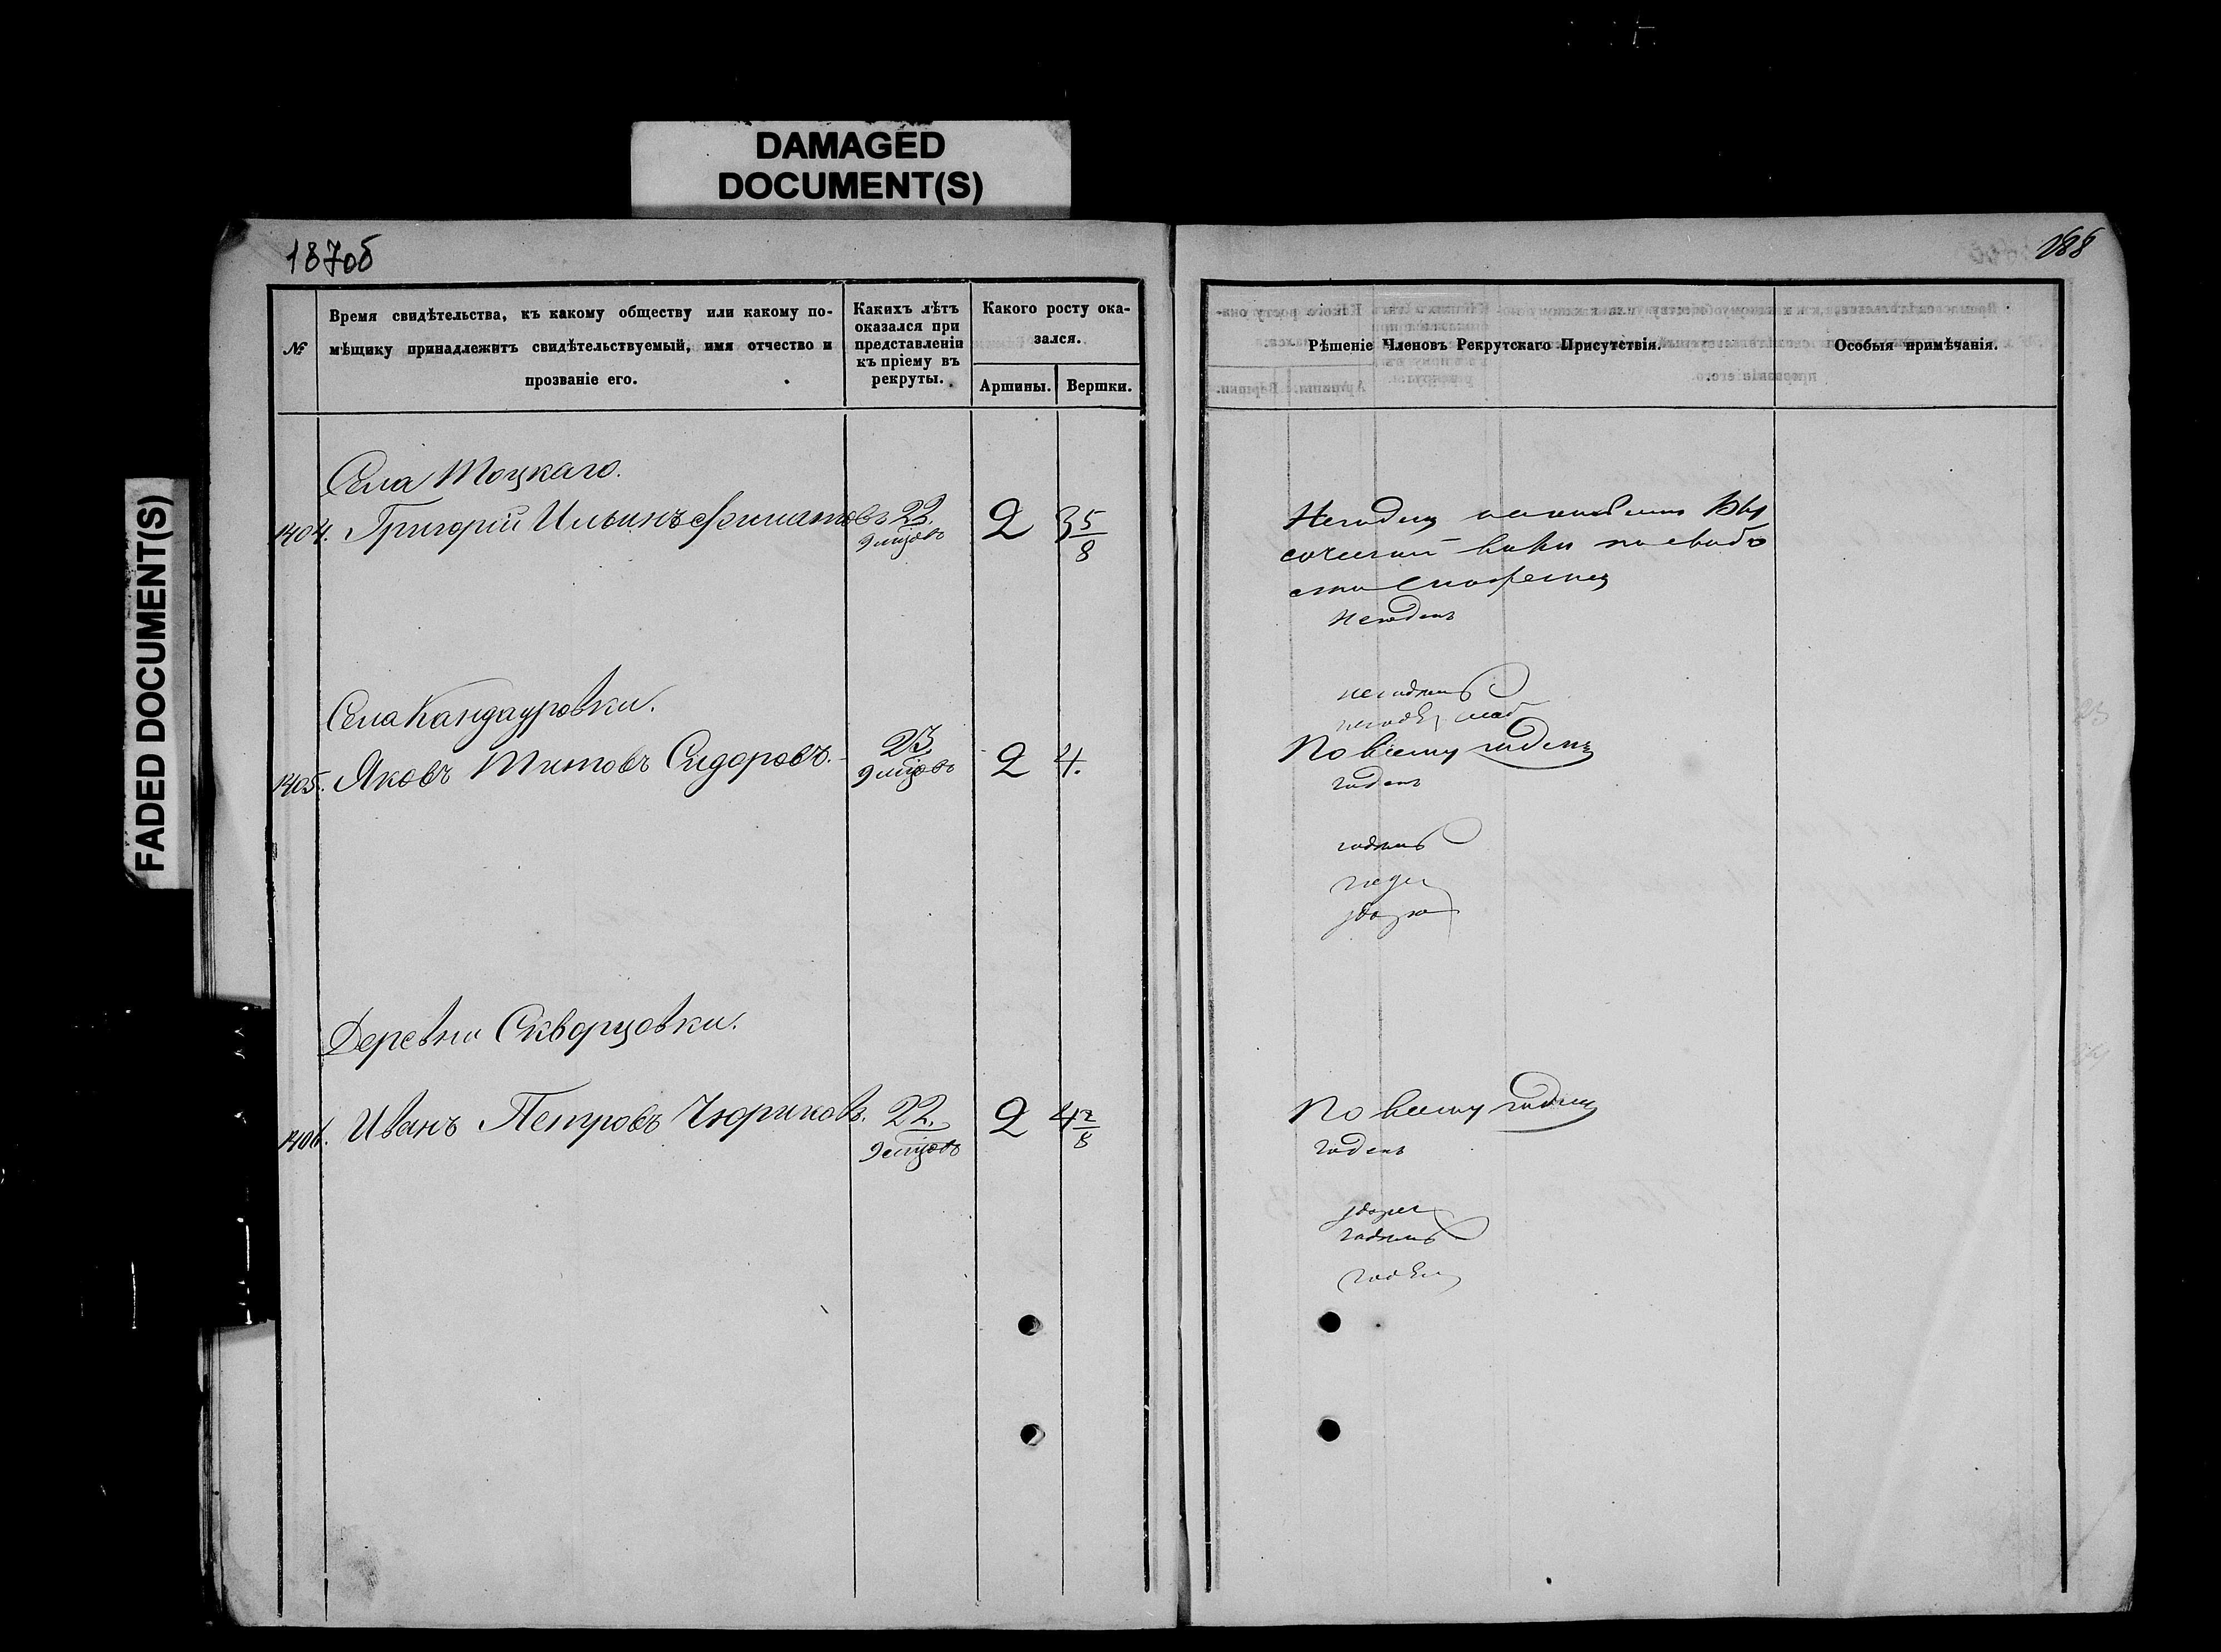 DAMAGED
DOCUMENT(S)
FADED DOCUMENT(S)
187об
188
№
Время свидѣтельства, къ какому обществу или какому по-
мѣщику принадлежитъ свидѣтельствуемый, имя отчество и
прозваніе его.
Какихъ лѣтъ
оказался при
представленіи
къ пріему въ
рекруты.
Какого росту ока-
зался.
Аршины.
Вершки.
Рѣшеніе Членовъ Рекрутскаго Присутствія.
Особыя примѣчанія.
Села Тоцкаго.
1404. Григорій Ильинъ Филатовъ 22. 2 3 5/8
9 мцовъ
Негоденъ
негоденъ
Села Кандауровки.
1405. Яковъ Титовъ Сидоровъ. 23. 2 4.
9 мцовъ
По всему годенъ
годенъ
годенъ
Деревни Скворцовки.
1406. Иванъ Петровъ Чюриковъ. 22. 2 4 2/8
9 мцовъ
По всему годенъ
годенъ
годенъ
годенъ